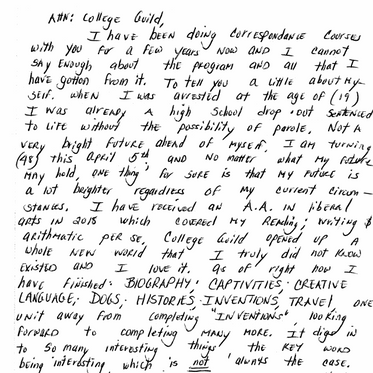 Attn: College Guild,
I have been doing correspondance courses
with you for a few years now and I cannot
say enough about the program and all that I
have gotton from it. To tell you a little about my-
self. when I was arrested at the age of (19)
I was already a high school drop-out sentenced
to life without the possibility of parole. Not a
very bright future ahead of myself. I am turning
this April 5th and no matter what my future
may hold, one thing for sure is that my future is
a lot brighter regardless of my current circum-
stances. I have received an A.A. in liberal
arts in 2018 which covered my reading, writing &
arithmatic per se, College Guild opened up a
whole new world that I truly did not know
existed and I love it. as of right now I
have finished: BIOGRAPHY, CAPTIVITIES, CREATIVE
LANGUAGE, DOGS, HISTORIES, INVENTIONS, TRAVEL, one
unit away from completing "INVENTIONS" looking
forward to completing many more. It digs in
to so many interesting things the key word
being interesting which is not always the case.